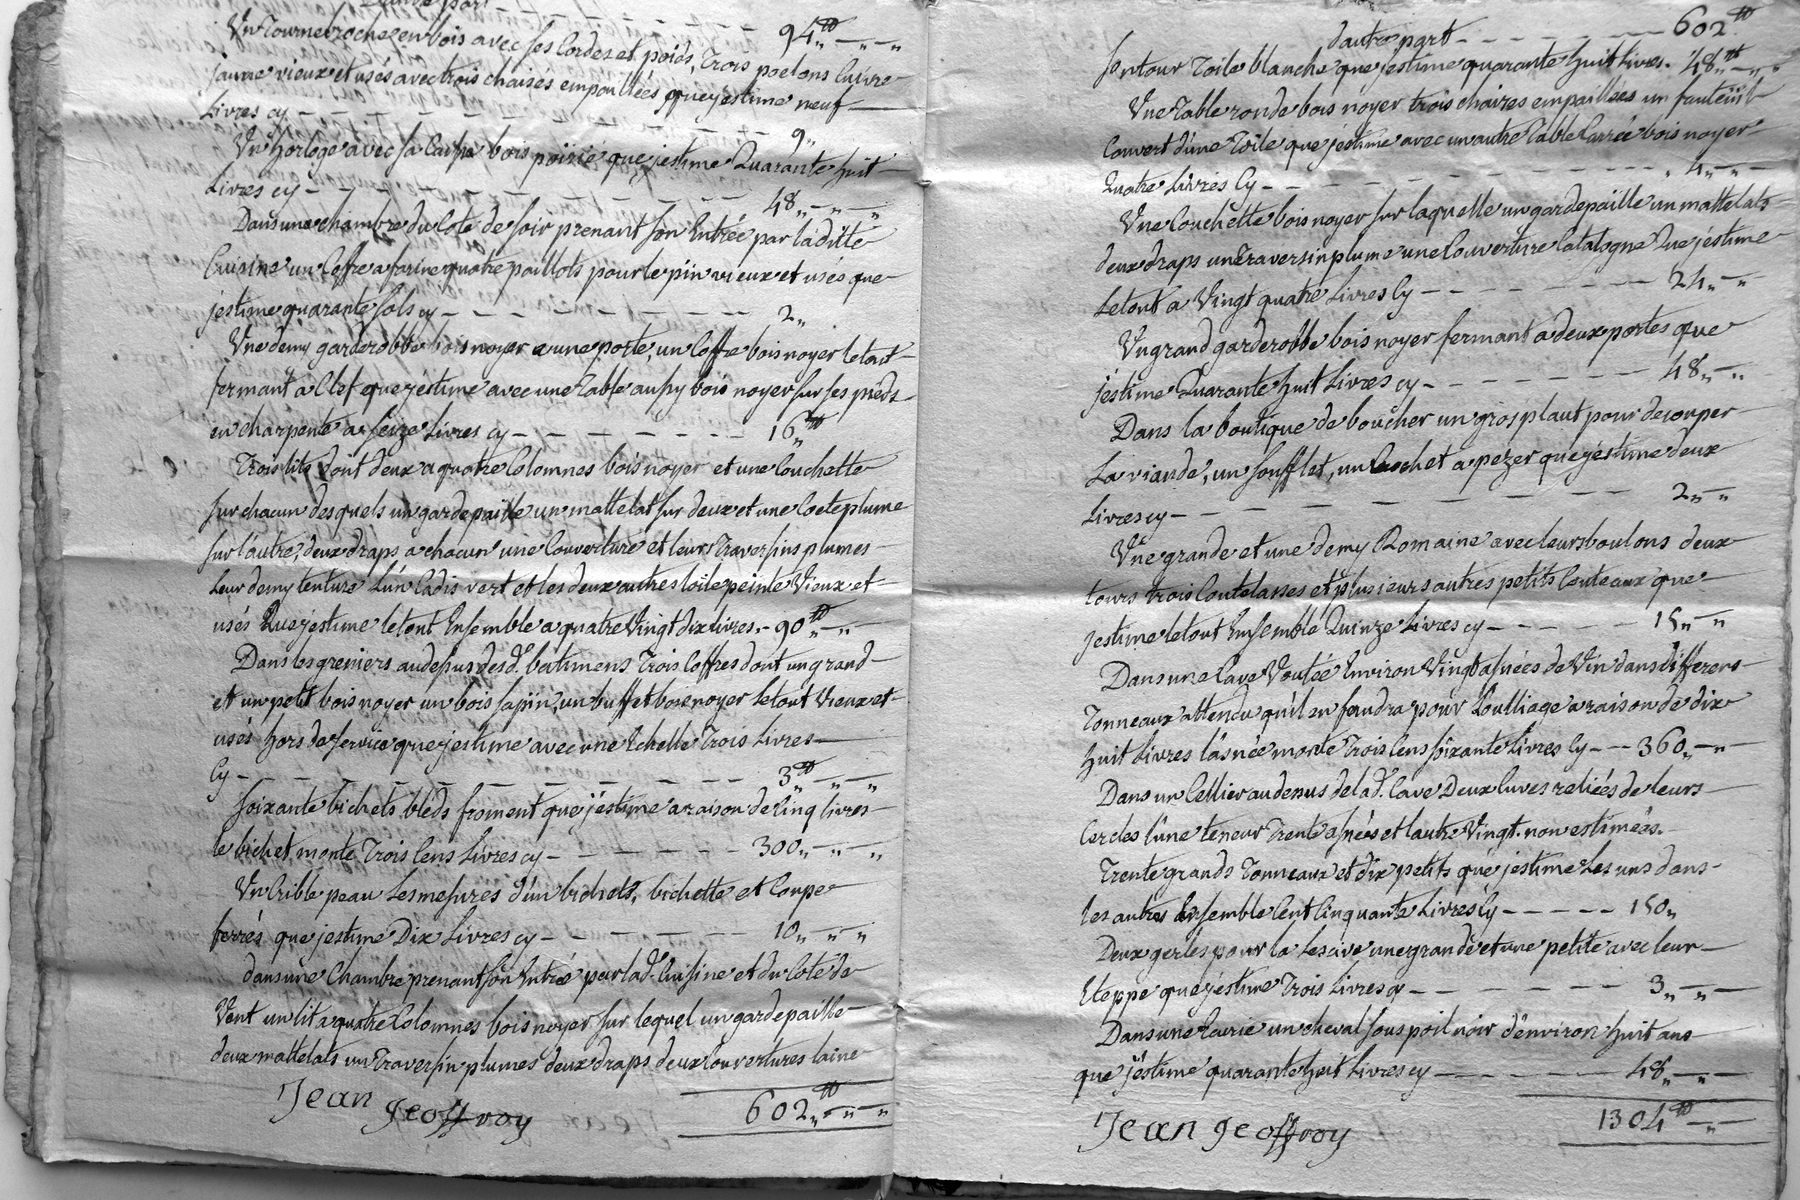 dautre part
94,,tt — ,, — ,,
Un Tournebroche en bois avec ses Cordes et poids, Trois poelons Cuivre
jaune vieux et usés avec trois chaises empaillées que jestime neuf
Livres cy — 9,,
Un horloge avec sa Caisse bois poirié que jestime Quarante huit
Livres cy — 48,, — ,, — ,,
Dans une chambre du Coté de soir prenant son Entrée par laditte
Cuisine un Coffre a farine quatre paillots pour le pin vieux et usés que
jestime quarante sols cy — 2,,
Une demy garderobbe bois noyer a une porte, un Coffre bois noyer letout
fermant a Clef que jéstime avec une Table aussy bois noyer sur ses pieds
en charpente a seize Livres cy — 16,,tt
Trois lits dont deux a quatre Colomnes bois noyer et une Couchette
sur chacun desquels un gardepaille un mattelat sur deux et une Coeteplume
sur l'autre, deux draps a chacun une Couverture et leurs Traversins plumes
Leur demy tenture L'un Cadis vert et les deux autres toile peinte Vieux et
usés Que jestime letout Ensemble a quatre Vingt dix livres. - 90,,tt — ,, —
Dans les greniers audessus desd. batimens Trois Coffres dont un grand
et un petit bois noyer un bois sapin, un buffet bois noyer letout Vieux et
usés hors de service que jestime avec une Echelle Trois Livres
Cy — 3,,tt — ,, — ,,
soixante bichets bleds froment que jéstime a raison de Cinq livres
le bichet monte Trois Cens Livres cy — 300,, — ,, — ,,
Un Crible peau Les mesures d'un bichets, bichette et Coupe
ferrés que jestime Dix Livres cy — 10,, — ,, — ,,
dans une Chambre prenant son Entrée par lad. Cuisine et du Coté de
Vent un lit a quatre Colomnes bois noyer sur lequel un gardepaille
deux mattelats un Traversin plumes deux draps deux Couvertures laine
Jean Geoffroy 602,,tt — ,, — ,,
dautre part — 602tt
son tour Toile blanche que jestime quarante huit Livres. 48,,tt — ,,
Une Table ronde bois noyer trois chaires empaillées un fauteüil
Couvert d'une Toile que jestime avec un autre Table Carrée bois noyer
Quatre Livres Cy — 4,, — ,, —
Une Couchette bois noyer sur laquelle un gardepaille un mattelats
deux draps un Traversin plume une Couverture Catalogne Que jéstime
Letout a Vingt quatre Livres Cy — 24,, — ,,
Un grand garderobbe bois noyer fermant a deux portes que
jéstime Quarante huit Livres cy — 48,, — ,,
Dans la boutique de boucher un gros plaut pour decouper
La viande, un soufflet, un Crochet a pezer que jéstime deux
Livres cy — 2,, — ,,
Une grande et une demy Romaine avec leurs boulons deux
tours trois Coutelasses et plusieurs autres petits Couteaux que
jestime letout Ensemble Quinze Livres cy — 15,, — ,,
Dans une Cave Voutée Environ Vingt asnées de Vin dans differens
Tonneaux attendu qu'il en faudra pour L'oulliage a raison de dix
huit Livres L'asnée monte Trois Cens soixante Livres Cy — 360,, — ,, —
Dans un Cellier audessus de lad. Cave Deux Cuves reliées de leurs
Cercles L'une teneur Trente asnées et lautre Vingt. non estimées.
Trente grands Tonneaux et dix petits que jestime Les uns dans
les autres Ensemble Cent Cinquante Livres Cy — 150,,
Deux gerles pour la Lescive une grande et une petite avec leur
Eteppe que jéstime Trois Livres cy — 3,, — ,, —
Dans une Ecurie un cheval sous poil noir d'environ huit ans
que jéstime quarante huit Livres cy — 48,, — ,, —
Jean Geoffroy 1304tt — ,, —